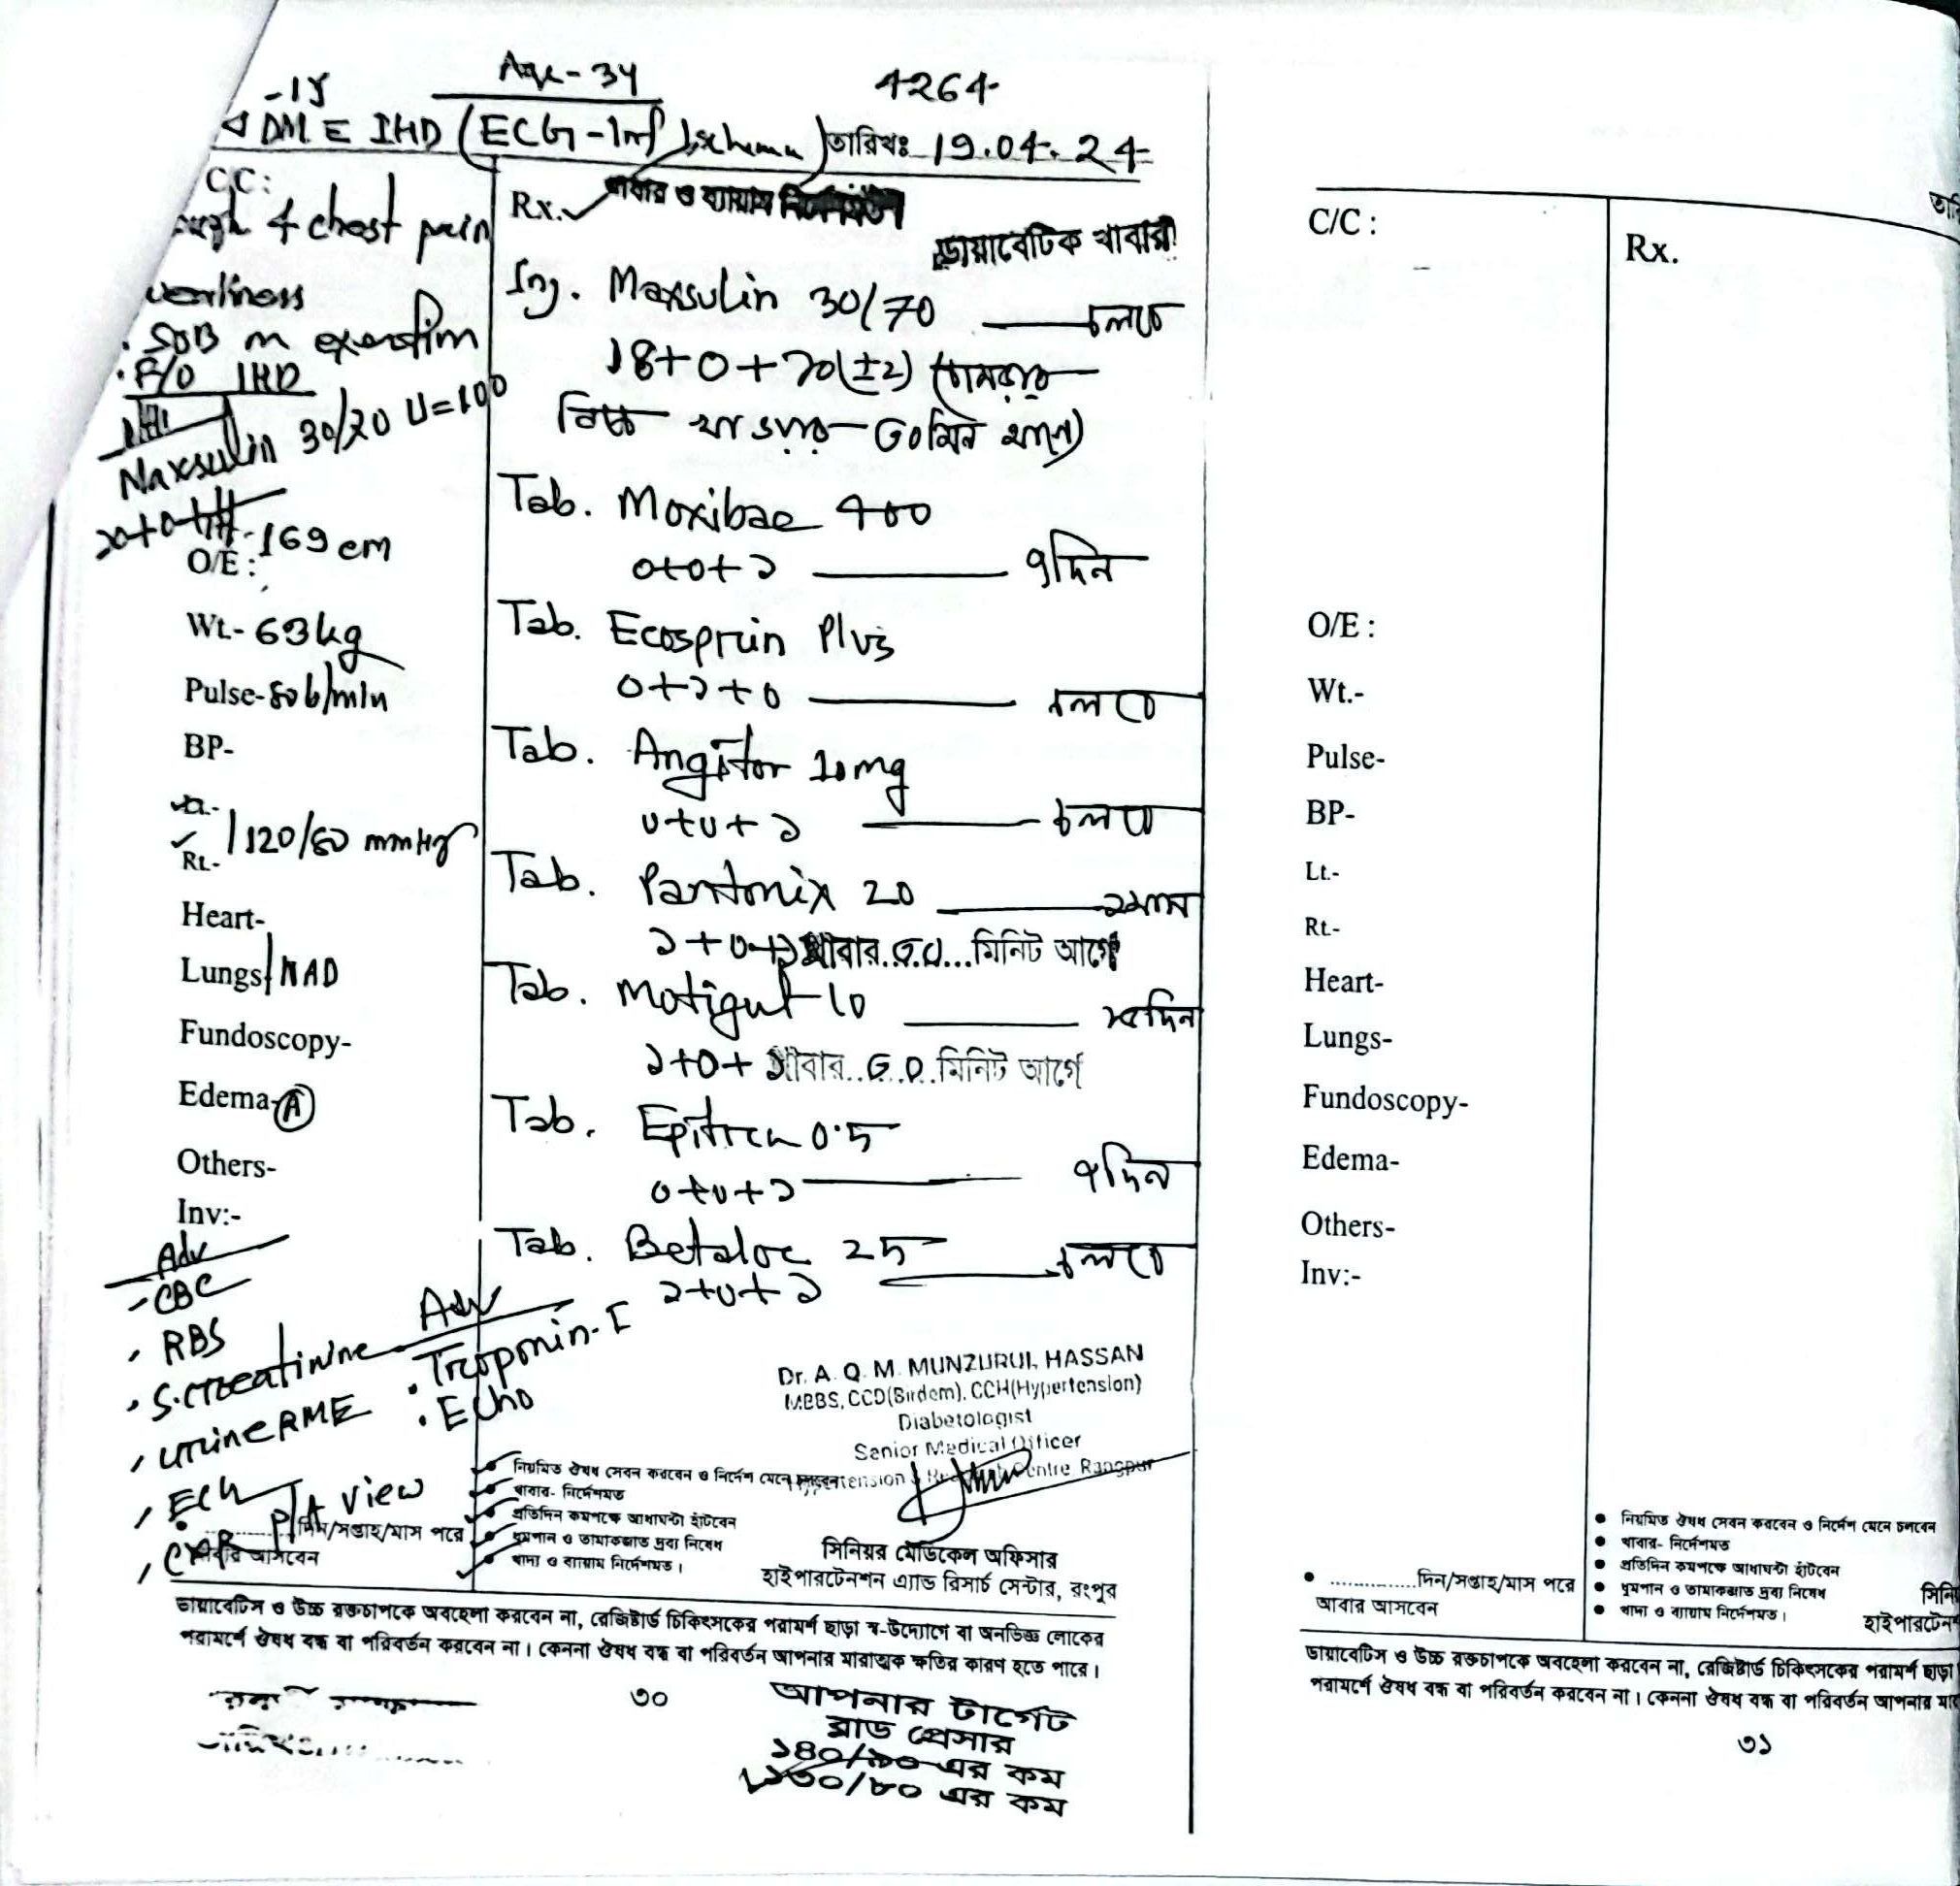 Age - 34
4264
DM E IHD (ECG - Inf Ischemia) তারিখঃ 19.04.24
C/C:
cough & chest pain
SOB on exertion
F/O IHD
Maxsulin 30/70 U=100
O/E: 169 cm
Wt.- 63 kg
Pulse- 80 b/min
BP-
Lt.-
Rt.- 120/80 mmHg
Heart-
Lungs- NAD
Fundoscopy-
Edema- A
Others-
Inv:-
Adv
- CBC
, RBS
, S.creatinine
, Urine RME
, ECG
, CXR P/A view
Adv
. Troponin-I
. Echo
Rx.
খাবার ও ব্যায়াম
ডায়াবেটিক খাবার
Inj. Maxsulin 30/70 চলবে
18+0+20(±2) (চামড়ার
নিচে খাওয়ার ৩০ মিনি আগে)
Tab. Moxibac 400
0+0+১ ৭দিন
Tab. Ecosprin Plus
0+১+0 চলবে
Tab. Angitor 10mg
0+0+১ চলবে
Tab. Pantonix 20 ২মাস
১+0+১ খাবার..৩০...মিনিট আগে
Tab. Motigut 10 দিন
১+0+১ খাবার..৩০..মিনিট আগে
Tab. Epitra 0.5
0+0+১ ৭দিন
Tab. Betaloc 25 চলবে
১+0+১
Dr. A. Q. M. MUNZURUL HASSAN
MBBS, CCD(Birdem), CCH(Hypertension)
Diabetologist
Senior Medical Officer
Hypertension & Research Centre, Rangpur
সিনিয়র মেডিকেল অফিসার
হাইপারটেনশন এ্যান্ড রিসার্চ সেন্টার, রংপুর
নিয়মিত ঔষধ সেবন করবেন ও নির্দেশ মেনে চলবেন
খাবার- নির্দেশমত
প্রতিদিন কমপক্ষে আধাঘন্টা হাঁটবেন
ধুমপান ও তামাকজাত দ্রব্য নিষেধ
খাদ্য ও ব্যায়াম নির্দেশমত।
............দিন/সপ্তাহ/মাস পরে
আবার আসবেন
ডায়াবেটিস ও উচ্চ রক্তচাপকে অবহেলা করবেন না, রেজিষ্টার্ড চিকিৎসকের পরামর্শ ছাড়া স্ব-উদ্যোগে বা অনভিজ্ঞ লোকের
পরামর্শে ঔষধ বন্ধ বা পরিবর্তন করবেন না। কেননা ঔষধ বন্ধ বা পরিবর্তন আপনার মারাত্মক ক্ষতির কারণ হতে পারে।
৩০
আপনার টার্গেট
ব্লাড প্রেসার
১৪০/৯০ এর কম
১৩০/৮০ এর কম
C/C :
Rx.
O/E :
Wt.-
Pulse-
BP-
Lt.-
Rt.-
Heart-
Lungs-
Fundoscopy-
Edema-
Others-
Inv:-
নিয়মিত ঔষধ সেবন করবেন ও নির্দেশ মেনে চলবেন
খাবার- নির্দেশমত
প্রতিদিন কমপক্ষে আধাঘন্টা হাঁটবেন
ধুমপান ও তামাকজাত দ্রব্য নিষেধ
খাদ্য ও ব্যায়াম নির্দেশমত।
...............দিন/সপ্তাহ/মাস পরে
আবার আসবেন
ডায়াবেটিস ও উচ্চ রক্তচাপকে অবহেলা করবেন না, রেজিষ্টার্ড চিকিৎসকের পরামর্শ ছাড়া
পরামর্শে ঔষধ বন্ধ বা পরিবর্তন করবেন না। কেননা ঔষধ বন্ধ বা পরিবর্তন আপনার
৩১